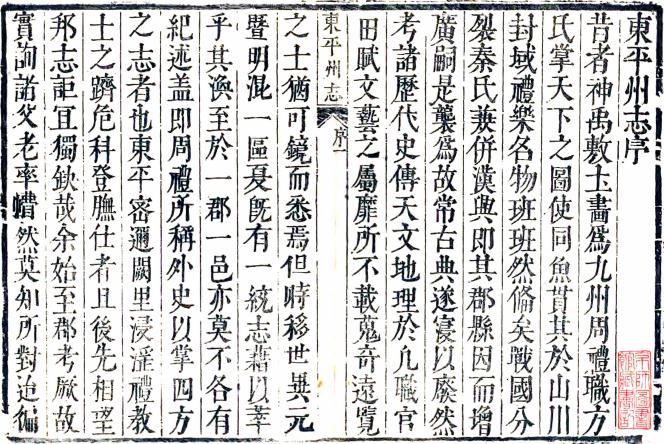 東平州志序
昔者神禹敷土畫爲九州周禮職方
氏掌天下之圖使同魚貫其於山川
封域禮樂名物班班然備矣戰國分
裂秦氏兼併漢興即其郡縣因而增
廣嗣是襲爲故常古典遂寖以廢然
考諸歷代史傳天文地理於凢職官
田賦文藝之屬靡所不載蒐奇遠覽
東平州志
序一
之士猶可鏡而悉焉但時移世異元
暨明混一區夏旣有一統志藉以莘
乎其渙至於一郡一邑亦莫不各有
紀述盖即周禮所稱外史以掌四方
之志者也東平密邇闕里浸淫禮教
士之躋危科登膴仕者且後先相望
邦志詎宜獨缺哉余始至郡考厥故
實詢諸父老率懵然莫知所對迨徧